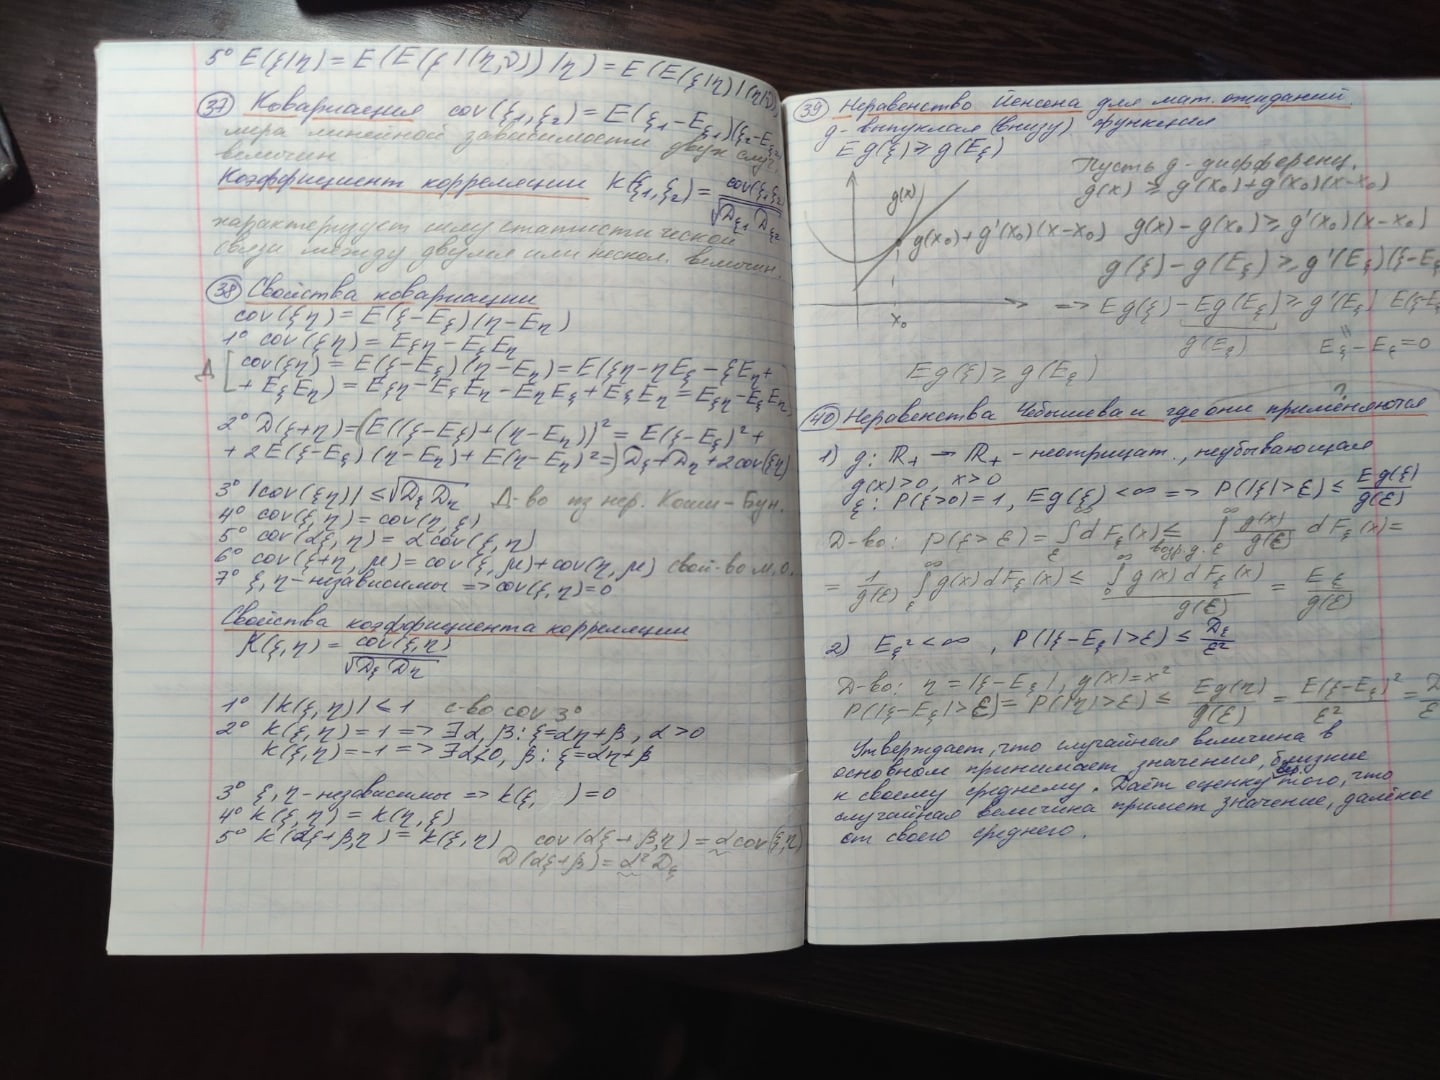 5° E(ξ|η) = E(E(ξ|(η,ν))|η) = E(E(ξ|η)|(η,ν))
37 Ковариация cov(ξ₁,ξ₂) = E(ξ₁-Eξ₁)(ξ₂-Eξ₂)
мера линейной зависимости двух случ.
величин
Коэффициент корреляции k(ξ₁,ξ₂) = cov(ξ₁,ξ₂)/√(Dξ₁ Dξ₂)
характеризует силу статистической
связи между двумя или нескол. величин.
38 Свойства ковариации
cov(ξη) = E(ξ-Eξ)(η-Eη)
1° cov(ξη) = Eξη - EξEη
Д [cov(ξη) = E(ξ-Eξ)(η-Eη) = E(ξη - ηEξ - ξEη +
+ EξEη) = Eξη - EξEη - EηEξ + EξEη = Eξη - EξEη,
2° D(ξ+η) = (E((ξ-Eξ)+(η-Eη))² = E(ξ-Eξ)² +
+ 2E(ξ-Eξ)(η-Eη) + E(η-Eη)² =) Dξ + Dη + 2cov(ξη)
3° |cov(ξη)| ≤ √(Dξ Dη) Д-во из нер. Коши-Бун.
4° cov(ξ,η) = cov(η,ξ)
5° cov(αξ,η) = αcov(ξ,η)
6° cov(ξ+η,μ) = cov(ξ,μ) + cov(η,μ) свой-во м.о.
7° ξ,η - независимы => cov(ξ,η) = 0
Свойства коэффициента корреляции
K(ξ,η) = cov(ξ,η)/√(Dξ Dη)
1° |k(ξ,η)| ≤ 1 с-во cov 3°
2° k(ξ,η) = 1 => ∃α,β: ξ = αη+β, α>0
k(ξ,η) = -1 => ∃α<0, β: ξ = αη+β
3° ξ,η - независимы => k(ξ, ) = 0
4° k(ξ,η) = k(η,ξ)
5° k(αξ+β,η) = k(ξ,η) cov(αξ+β,η) = αcov(ξ,η)
D(αξ+β) = α²Dξ
39 Неравенство Йенсена для мат. ожиданий
g - выпуклая (вниз) функция
Eg(ξ) ≥ g(Eξ)
Пусть g - дифференц.
g(x) ≥ g(x₀) + g'(x₀)(x-x₀)
g(x)
g(x₀) + g'(x₀)(x-x₀) g(x) - g(x₀) ≥ g'(x₀)(x-x₀)
g(ξ) - g(Eξ) ≥ g'(Eξ)(ξ-Eξ
=> Eg(ξ) - Eg(Eξ) ≥ g'(Eξ) E(ξ-Eξ
x₀ g(Eξ) Eξ - Eξ = 0
Eg(ξ) ≥ g(Eξ)
?
40 Неравенства Чебышева и где они применяются
1) g: R₊ → R₊ - неотрицат., неубывающая
g(x)>0, x>0
ξ: P(ξ>0) = 1, Eg(ξ) < ∞ => P(|ξ|>ε) ≤ Eg(ξ)/g(ε)
Д-во: P(ξ>ε) = ∫_ε^∞ dFξ(x) ≤ ∫_ε^∞ g(x)/g(ε) dFξ(x) =
возр. g. ε
= 1/g(ε) ∫_ε^∞ g(x)dFξ(x) ≤ ∫_0^∞ g(x)dFξ(x)/g(ε) = Eξ/g(ε)
2) Eξ² < ∞, P(|ξ-Eξ|>ε) ≤ Dξ/ε²
Д-во: η = |ξ-Eξ|, g(x) = x²
P(|ξ-Eξ|>ε) = P(|η|>ε) ≤ Eg(η)/g(ε) = E(ξ-Eξ)²/ε² = D/ε
Утверждает, что случайная величина в
основном принимает значения, близкие
к своему среднему. Даёт оценку того, что
случайная величина примет значение, далёкое
от своего среднего.